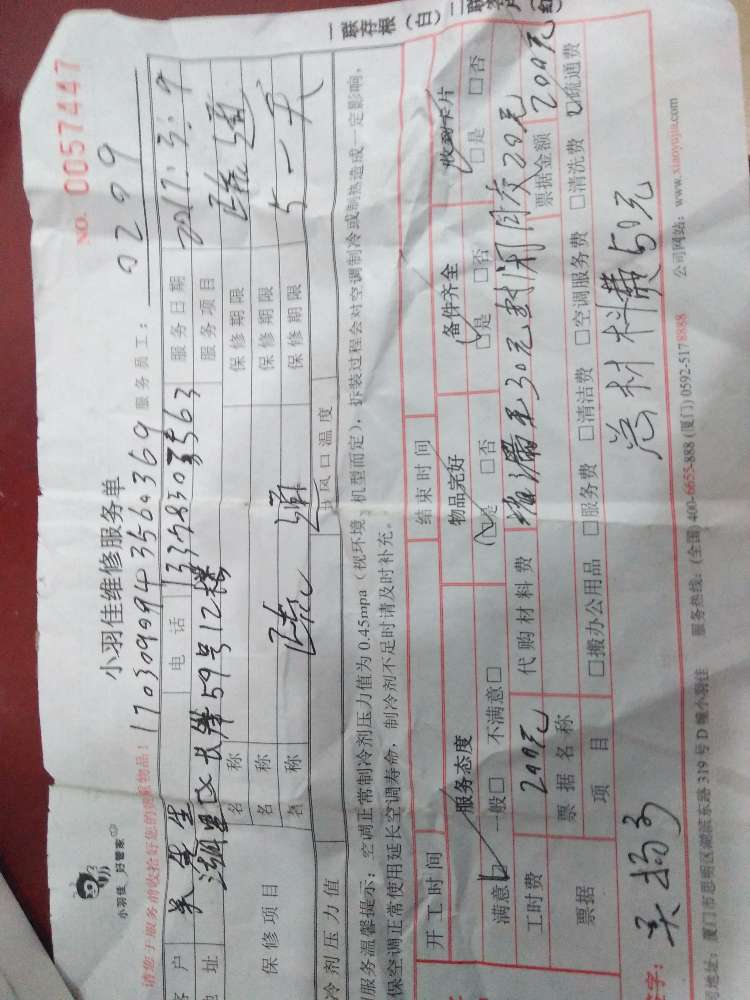 一联存根(白)二联
NO. 0057447
小羽佳 好管家
小羽佳维修服务单
请您于服务前收拾好您的贵重物品!
1703090943560369 服务员工: 0209
客户 吴先生 电话 13378303563 服务日期 2017.3.9
地址 湖里区长岸路59号12楼 服务项目
保修项目 名称 保修期限
名称 保修期限
名称 保修期限
冷剂压力值 出风口温度
服务温馨提示:空调正常制冷剂压力值为0.45mpa(视环境、机型而定),拆装过程会对空调制冷或制热造成一定影响,
保空调正常使用延长空调寿命,制冷剂不足时请及时补充。
开工时间 结束时间
服务态度 物品完好 备件齐全 收到卡片
满意 一般 不满意 是 否 是 否 是 否
工时费 200元 代购材料费 30元 20元
票据 票据名称 票据金额 200元
项目 搬办公用品 服务费 清洁费 空调服务费 清洗费 疏通费
总材料费50元
字:
地址:厦门市思明区湖滨东路319号D幢小羽佳 服务热线:(全国)400-6655-888(厦门)0592-5178888 公司网站:www.xiaoyujia.com